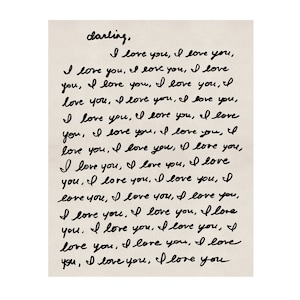 darling,
I love you, I love you,
I love you, I love you, I love
you, I love you, I love you, I
love you, I love you, I love you,
I love you, I love you, I love
you, I love you, I love you, I
love you, I love you, I love
you, I love you, I love you, I
love you, I love you, I love you,
I love you, I love you, I love
you, I love you, I love you, I
love you, I love you, I love
you, I love you, I love you